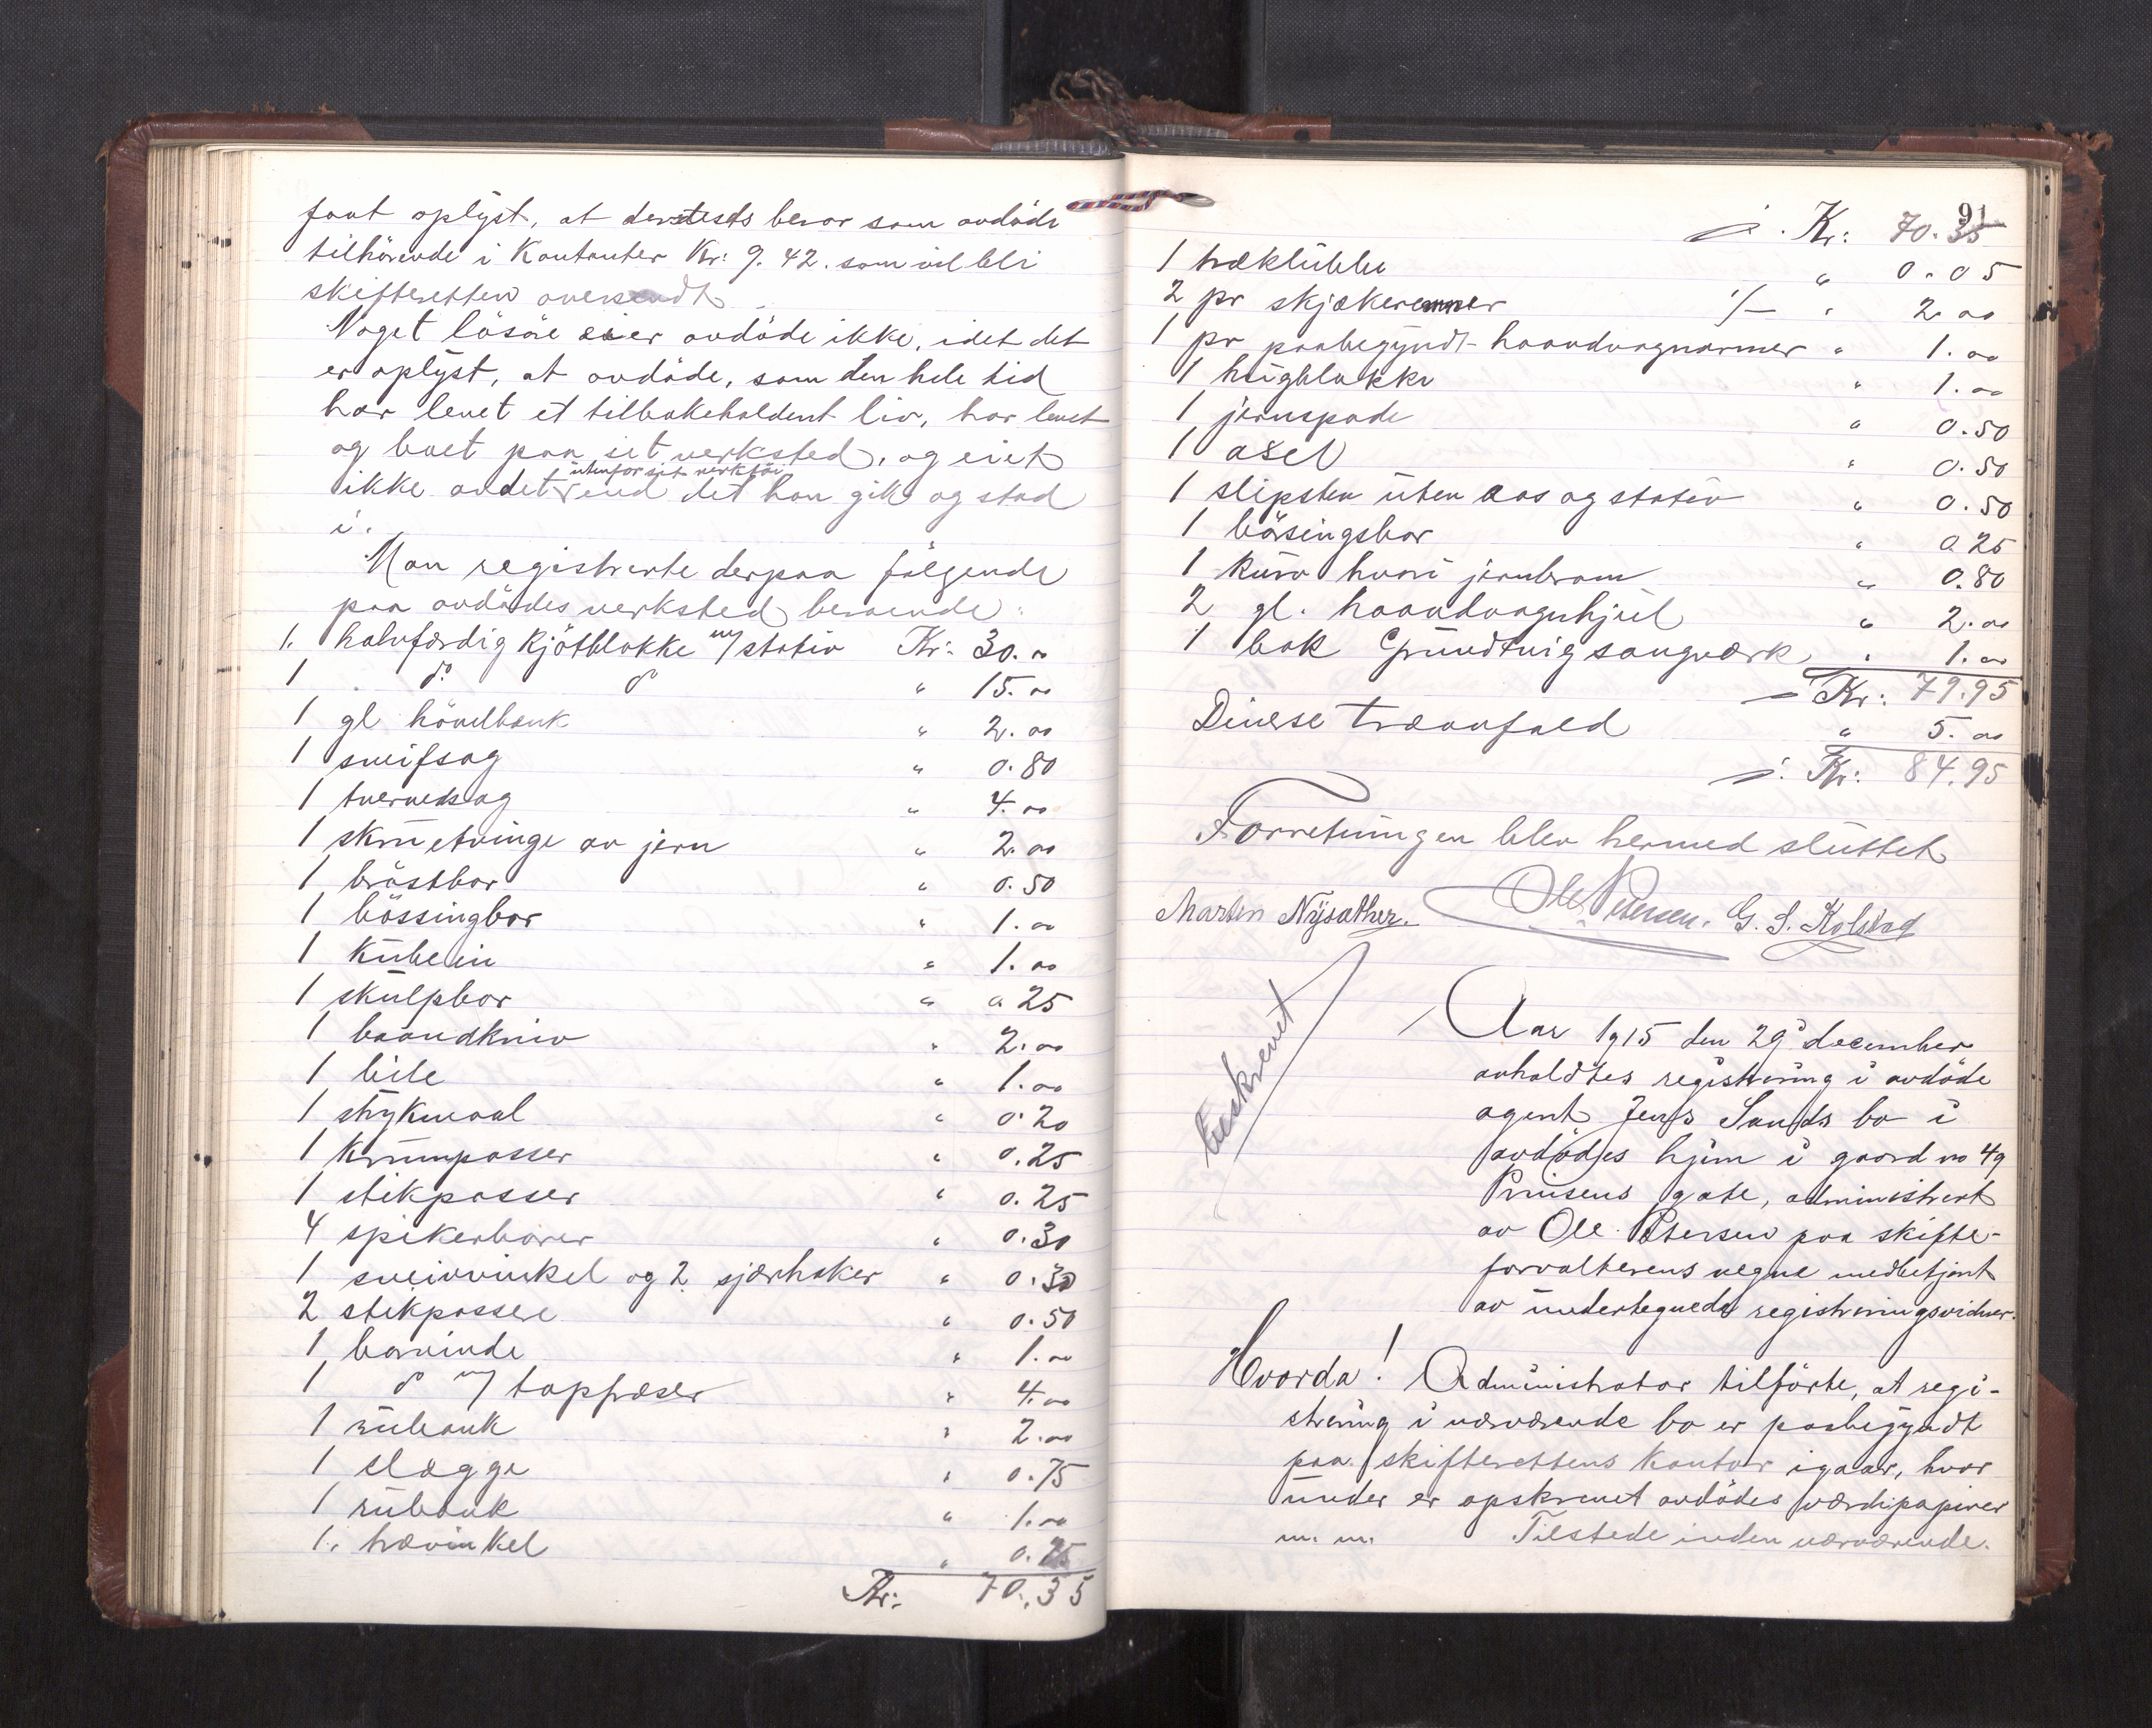 faat oplyst, at dersteds beror som avdöde
tilhörende i kontanter Kr: 9.42. som vil bli
skifteretten oversendt
Noget lösöre eier avdöde ikke, idet det
er oplyst, at avdöde, som den hele tid
har levet et tilbakeholdent liv, har levet
og boet paa sit verksted, og eiet
utenfor sit verktöi
ikke andet end det han gik og stod
i.
Man registrerte derpaa følgende
paa avdödes verksted beroende:
1. halvfærdig kjötblokke m/ stativ Kr: 30.00
1 do do " 15.00
1 gl hövelbænk " 2.00
1 sveifsag " 0.80
1 tvervedsag " 4.00
1 skruetvinge av jern " 2.00
1 bröstbor " 0.50
1 bössingbor " 1.00
1 kubein " 1.00
1 skulpbor " 0 25
1 baandkniv " 2.00
1 bile " 1.00
1 strykmaal " 0.20
1 krumpasser " 0.25
1 stikpasser " 0.25
4 spikerborer " 0.30
1 sveivvinkel og 2 " 0.30
2 stikpassere " 0.50
1 borvinde " 1.00
1 do m/ tapfræser " 4.00
1 rubank " 2.00
1 slægge " 0.75
1 rubank " 1.00
1. trævinkel " 0.25
Kr: 70.35
91
Kr: 70.35
1 træklubbe " 0.05
2 pr skjækeremner 1/- " 2.00
1 pr paabegyndt haandvognarmer " 1.00
1 hugblokke " 1.00
1 jernspade " 0.50
1 øsel " 0.50
1 slipsten uten aas og stativ " 0.50
1 bösingsbor " 0 25
1 kurv hvori jernkram " 0.80
2 gl. haandvognhjul " 2.00
1 bok Grundtvig sangværk " 1.00
Kr: 79.95
Diverse træavfald " 5.00
Kr: 84.95
Forretningen blev hermed sluttet
Martin Nysæther. Ole Petersen. G. S. Kolstad
Utskrevet
Aar 1915 den 29 december
avholdtes registrering i avdöde
agent Jens Sands bo i
avdödes hjem i gaard no 49
Prinsens gate, administrert
av Ole Petersen paa skifte-
forvalterens vegne medbetjent
av undertegnede registreringsvidner.
Hvorda! Administrator tilförte, at regi-
strering i nærværende bo er paabegyndt
paa skifterettens kontor igaar, hvor
under er opskrevet avdödes værdipapirer
m. m. Tilstede inden nærværende.